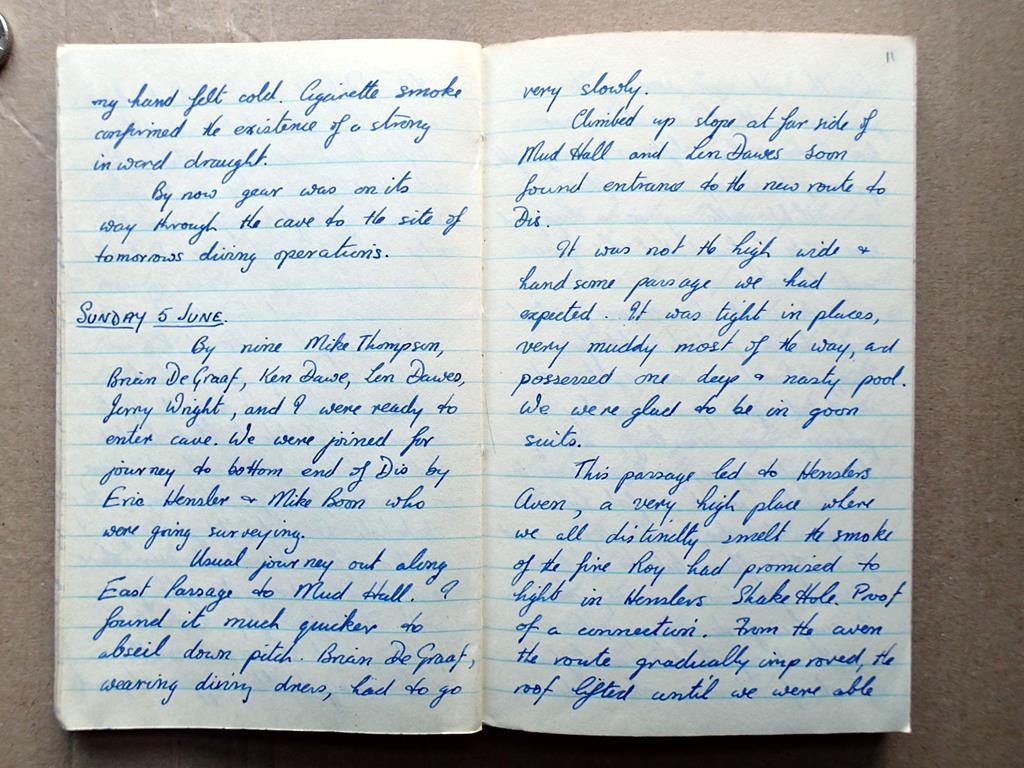 my hand felt cold. Cigarette smoke
confirmed the existence of a strong
inward draught.
By now gear was on its
way through the cave to the site of
tomorrows diving operations.
SUNDAY 5 JUNE.
By nine Mike Thompson,
Brian De Graaf, Ken Dawe, Len Dawes,
Jerry Wright, and I were ready to
enter cave. We were joined for
journey to bottom end of Dis by
Eric Hensler & Mike Boon who
were going surveying.
Usual journey out along
East Passage to Mud Hall. I
found it much quicker to
abseil down pitch. Brian De Graaf,
wearing diving dress, had to go
11
very slowly.
Climbed up slope at far side of
Mud Hall and Len Dawes soon
found entrance to the new route to
Dis.
It was not the high wide &
handsome passage we had
expected. It was tight in places,
very muddy most of the way, and
possessed one deep & nasty pool.
We were glad to be in goon
suits.
This passage led to Henslers
Aven, a very high place where
we all distinctly smelt the smoke
of the fire Roy had promised to
light in Henslers Shake Hole. Proof
of a connection. From the aven
the route gradually improved, the
roof lifted until we were able